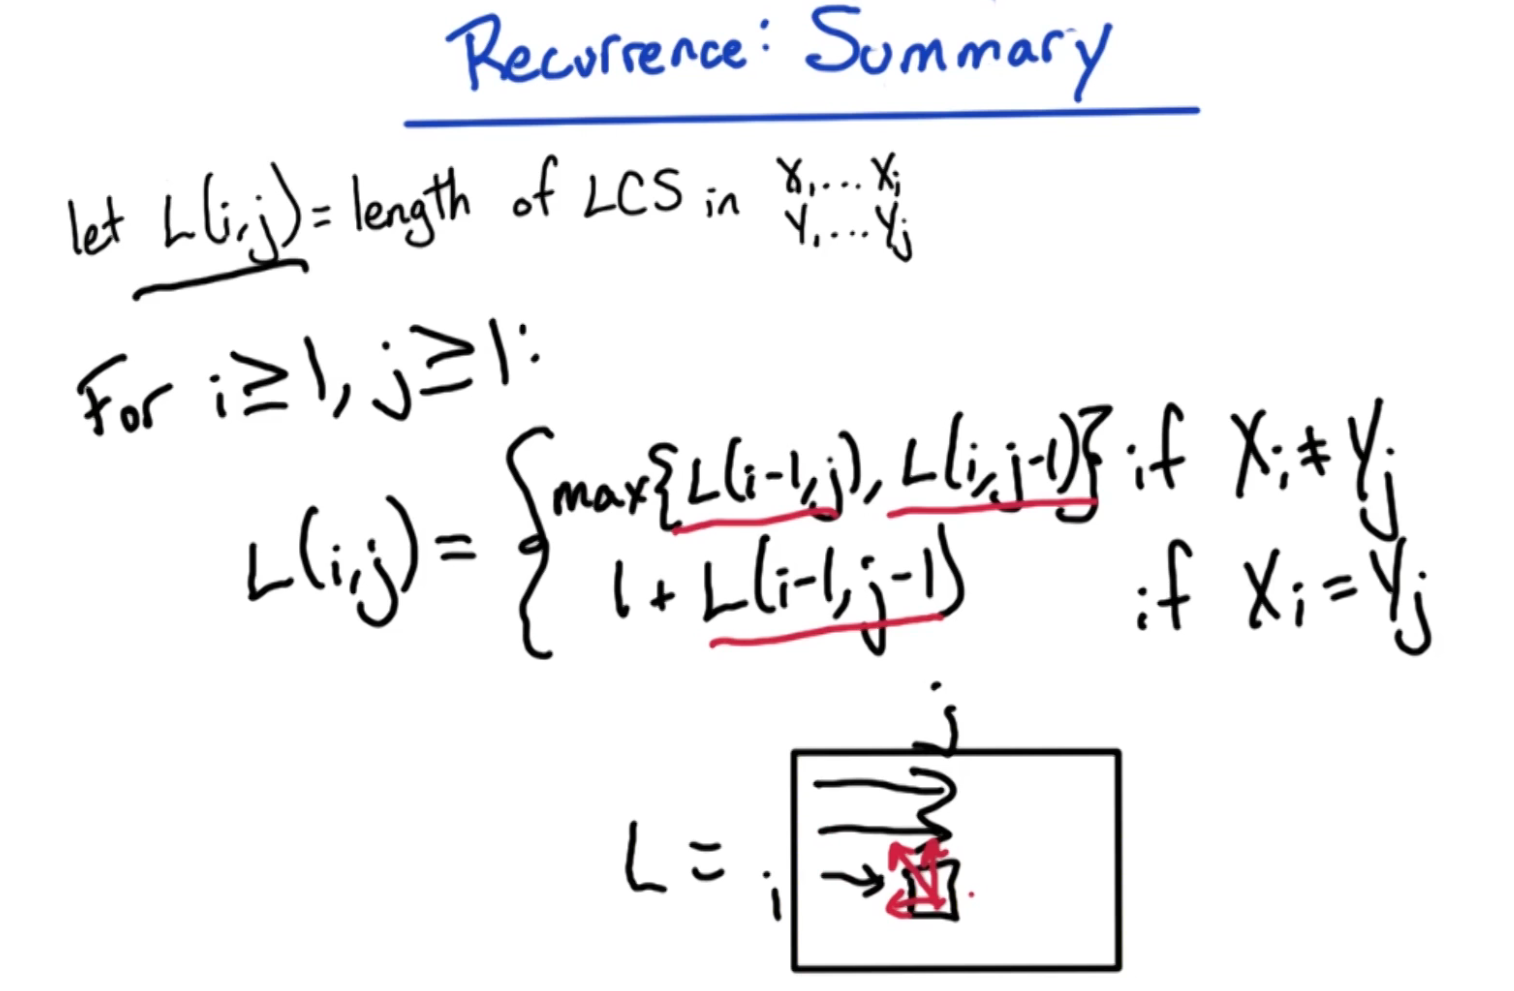 Recurrence: Summary
let L(i,j) = length of LCS in X₁...Xᵢ
Y₁...Yⱼ
For i≥1, j≥1:
L(i,j) = { max{L(i-1,j), L(i,j-1)} if Xᵢ ≠ Yⱼ
1 + L(i-1,j-1) if Xᵢ = Yⱼ
j
L =
i